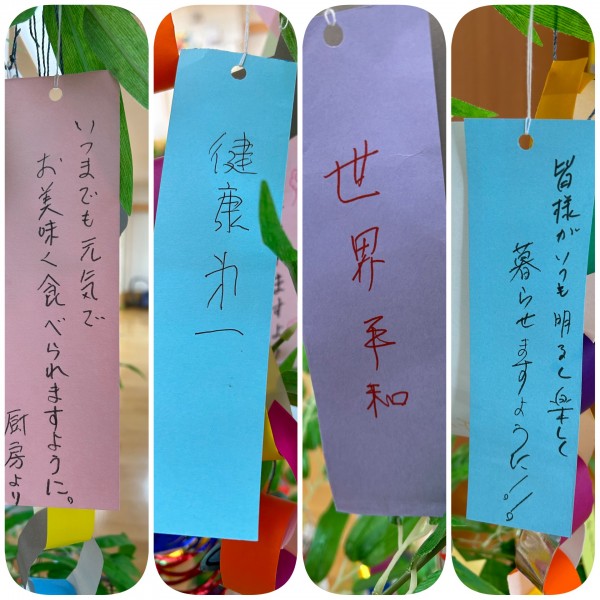 いつまでも元気で
お美味く食べられますように。
厨房より
健康第一
世界平和
皆様がいつも明るく楽しく
暮らせますように!!